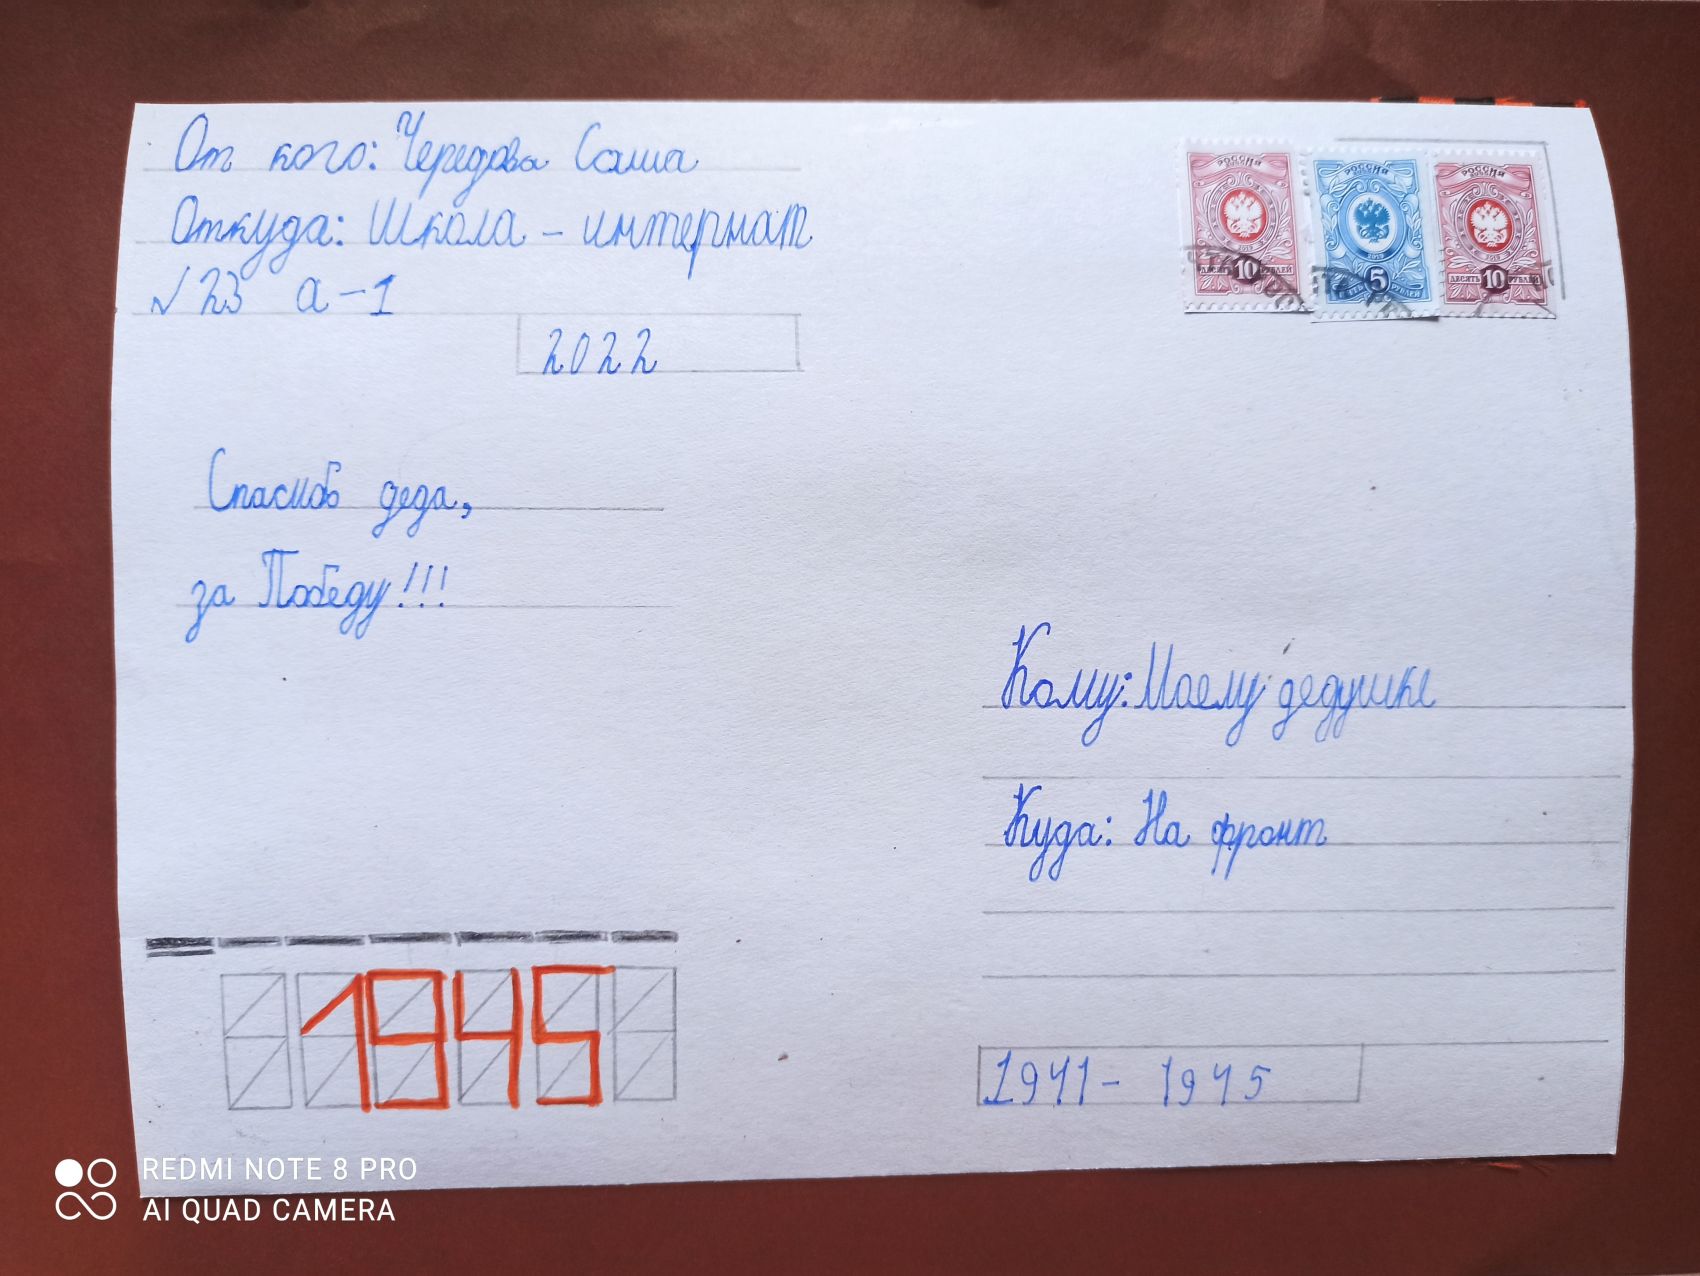 От кого: Чередова Саша
Откуда: Школа - интернат
№ 23 а-1
2022
РОССИЯ
ДЕСЯТЬ 10 РУБЛЕЙ
РОССИЯ
2019
ПЯТЬ 5 РУБЛЕЙ
РОССИЯ
2019
ДЕСЯТЬ 10 РУБЛЕЙ
Спасибо деда,
за Победу!!!
Кому: Моему дедушке
Куда: На фронт
1945
1941 - 1945
REDMI NOTE 8 PRO
AI QUAD CAMERA